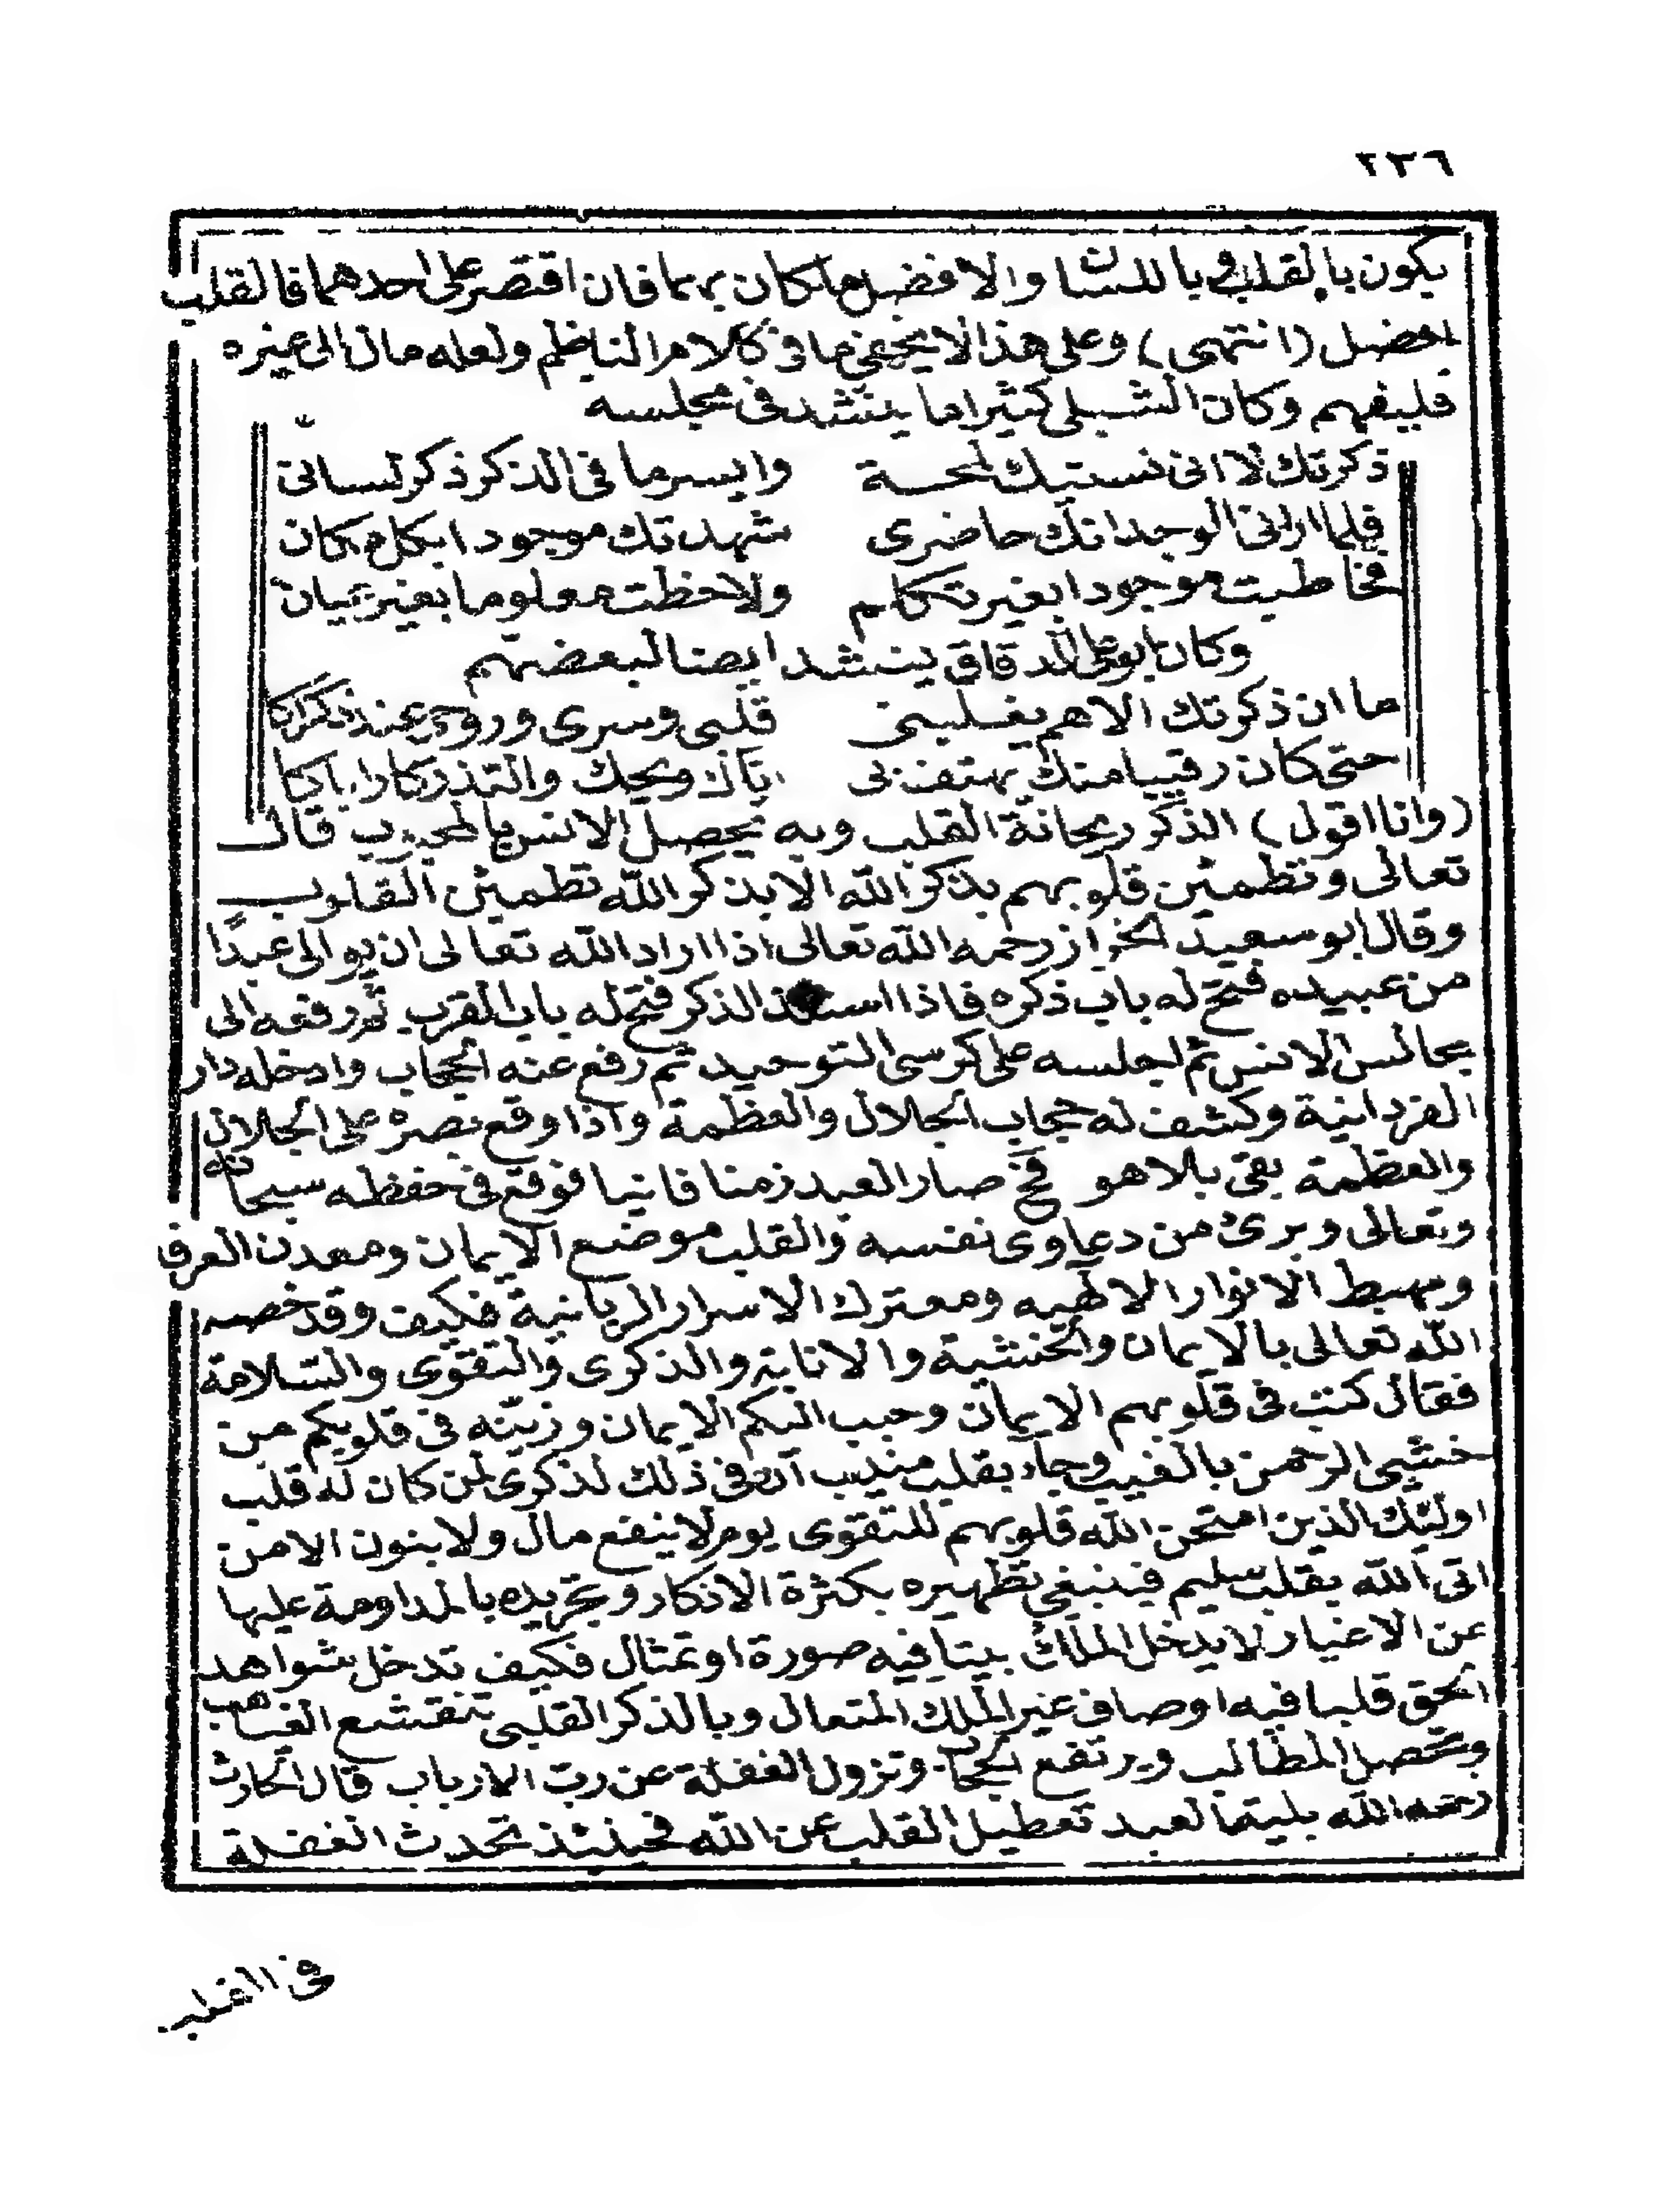 ٢٣٦
يكون بالقلب وباللسان والافضل ما كان بهما فان اقتصر على احدهما فالقلب
افضل (انتهى) وعلى هذا لا يخفى ما فى كلام الناظم ولعله مال الى غيره
فليفهم وكان الشبلى كثيرا ما ينشد فى مجلسه
ذكرتك لا انى نسيتك لمحة وايسر ما فى الذكر ذكر لسانى
فلما ارانى الوجد انك حاضرى شهدتك موجودا بكل مكان
فخاطبت موجودا بغير تكلم ولاحظت معلوما بغير عيان
وكان ابو على الدقاق ينشد ايضا لبعضهم
ما ان ذكرتك الا هم يغلبنى قلبى وسرى وروحى عند ذكراكا
حتى كان رقيبا منك يهتف بى اياك ويحك والتذكار اياكا
(وانا اقول) الذكر ريحانة القلب وبه يحصل الانس بالمحبوب قال
تعالى وتطمئن قلوبهم بذكر الله الا بذكر الله تطمئن القلوب
وقال ابو سعيد الخراز رحمه الله تعالى اذا اراد الله تعالى ان يوالى عبدا
من عبيده فتح له باب ذكره فاذا استلذ الذكر فتح له باب القرب ثم رفعه الى
مجالس الانس ثم اجلسه على كرسى التوحيد ثم رفع عنه الحجاب وادخله دار
الفردانية وكشف له حجاب الجلال والعظمة واذا وقع بصره على الجلال
والعظمة بقى بلا هو فح صار العبد زمنا فانيا فوقع فى حفظه سبحانه
وتعالى وبرئ من دعاوى نفسه والقلب موضع الايمان ومعدن العرفا
ومهبط الانوار الالهيه ومعترك الاسرار الربانية فكيف وقد خصه
الله تعالى بالايمان والخشية والانابة والذكرى والتقوى والسلامة
فقال كتب فى قلوبهم الايمان وحبب اليكم الايمان وزينه فى قلوبكم من
خشى الرحمن بالغيب وجاء بقلب منيب ان فى ذلك لذكرى لمن كان له قلب
اولئك الذين امتحن الله قلوبهم للتقوى يوم لا ينفع مال ولا بنون الا من
اتى الله بقلب سليم فينبغى تطهيره بكثرة الاذكار وتجريده بالمداومة عليها
عن الاغيار لا يدخل الملك بيتا فيه صورة او تمثال فكيف تدخل شواهد
الحق قلبا فيه اوصاف غير الملك المتعال وبالذكر القلبى تنقشع الغياهب
وتحصل المطالب ويرتفع الحجاب وتزول الغفلة عن رب الارباب قال الحارث
رحمه الله بلية العبد تعطيل القلب عن الله فحينئذ تحدث الغفلة
فى القلب